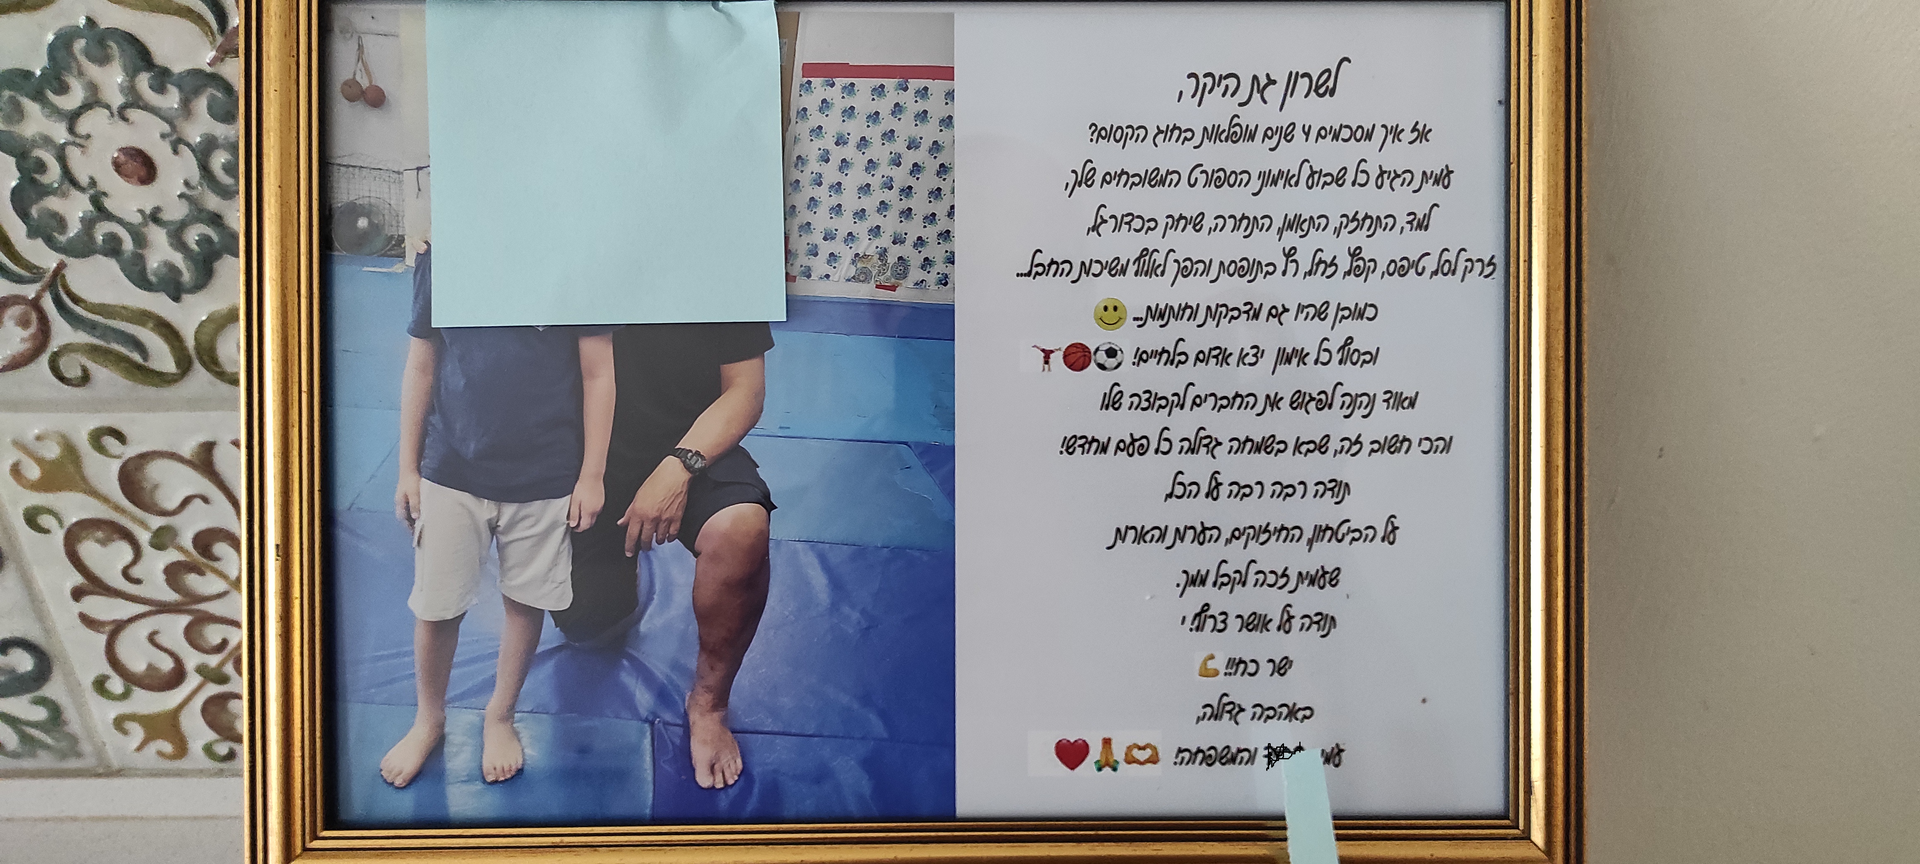 לשרון גת היקר,
אז איך מסכמים 4 שנים מופלאות בחוג הקסום?
עמית הגיע כל שבוע לאימוני הספורט המשובחים שלך,
למד, התחזק, התאמן, התחרה, שיחק בכדורגל,
זרק לסל, טיפס, קפץ, זחל, רץ בתופסת והפך לאלוף משיכות החבל...
כמובן שהיו גם מדבקות וחותמות...
ובסוף כל אימון יצא אדום בלחיים!
מאוד נהנה לפגוש את החברים לקבוצה שלו
והכי חשוב זה, שבא בשמחה גדולה כל פעם מחדש!
תודה רבה רבה על הכל,
על הביטחון, החיזוקים, הערות והארות
שעמית זכה לקבל ממך.
תודה על אושר צרוף! י
ישר כח!!
באהבה גדולה,
והמשפחה!